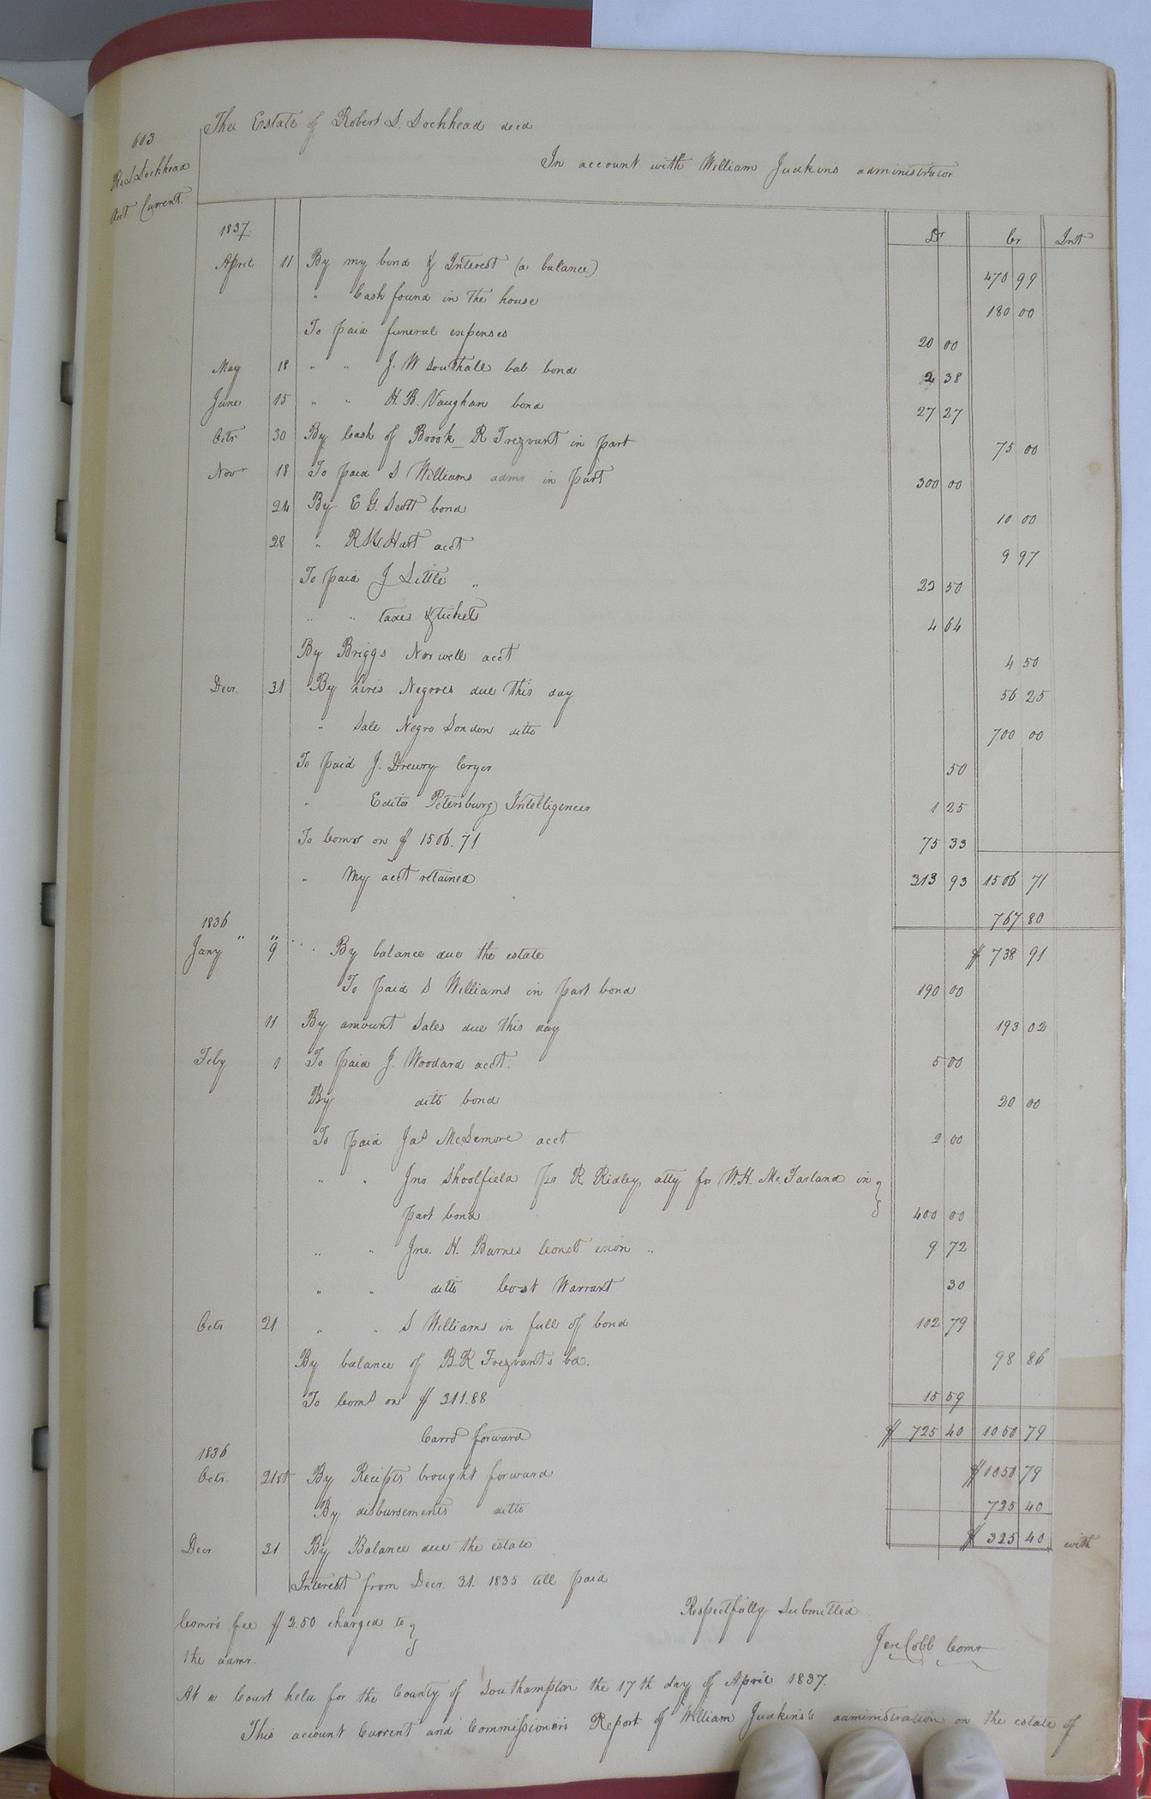 603
R. S. Lochhead
Acct Current.
The Estate of Robert S. Lochhead decd
In account with William Judkins administrator
1837 Dr Cr Intt
April 11 By my bond & Interest (a balance) 470 99
" Cash found in the house 180 00
To paid funeral expenses 20 00
May 18 " " J. W Southall bal bond 2 38
June 15 " " H. B. Vaughan bond 27 27
Octr 30 By Cash of Brook R Trezvant in part 75 00
Novr 18 To paid S Williams admr in part 300 00
24 By E G. Scott bond 10 00
28 " Hart acct 9 97
To paid J Little " 22 50
" " taxes & tickets 4 64
By Briggs Norwell acct 4 50
Decr. 31 By hires Negroes due this day 56 25
" Sale Negro London ditto 700 00
To paid J. Drewry Cryer 50
" Editor Petersburg Intelligencer 1 25
To Comr on $ 1506.71 75 33
" My acct retained 313 93 1506 71
1836 767 80
Jany " 9 By balance due the estate $ 738 91
To paid S Williams in part bond 190 00
11 By amount Sales due this day 193 02
Feby 1 To paid J. Woodard acct. 5 00
By ditto bond 20 00
To paid Jas McLemore acct 2 00
" " Jno Shoolfield pr R Ridley atty for W. H. Mc. Farland in }
part bond 400 00
" " Jno. H. Barnes Const exion " 9 72
" " ditto Cost Warrant 30
Octr 21 " " S Williams in full of bond 102 79
By balance of B. R Trezvant's bd. 98 86
To Coms on $ 311.88 15 59
Carrd forward $ 725 40 1050 79
1836
Octr. 21st By Receipts brought forward $ 1050 79
By disbursements ditto 725 40
Decr 31 By Balance due the estate $ 325 40 with
Interest from Decr. 31. 1835 till paid
Comr's fee $ 2.50 charged to }
the admr.
Respectfully Submitted
Jere Cobb Comr
At a Court held for the County of Southampton the 17th day of April 1837.
This account Current and Commissioners Report of William Judkins's administration on the estate of